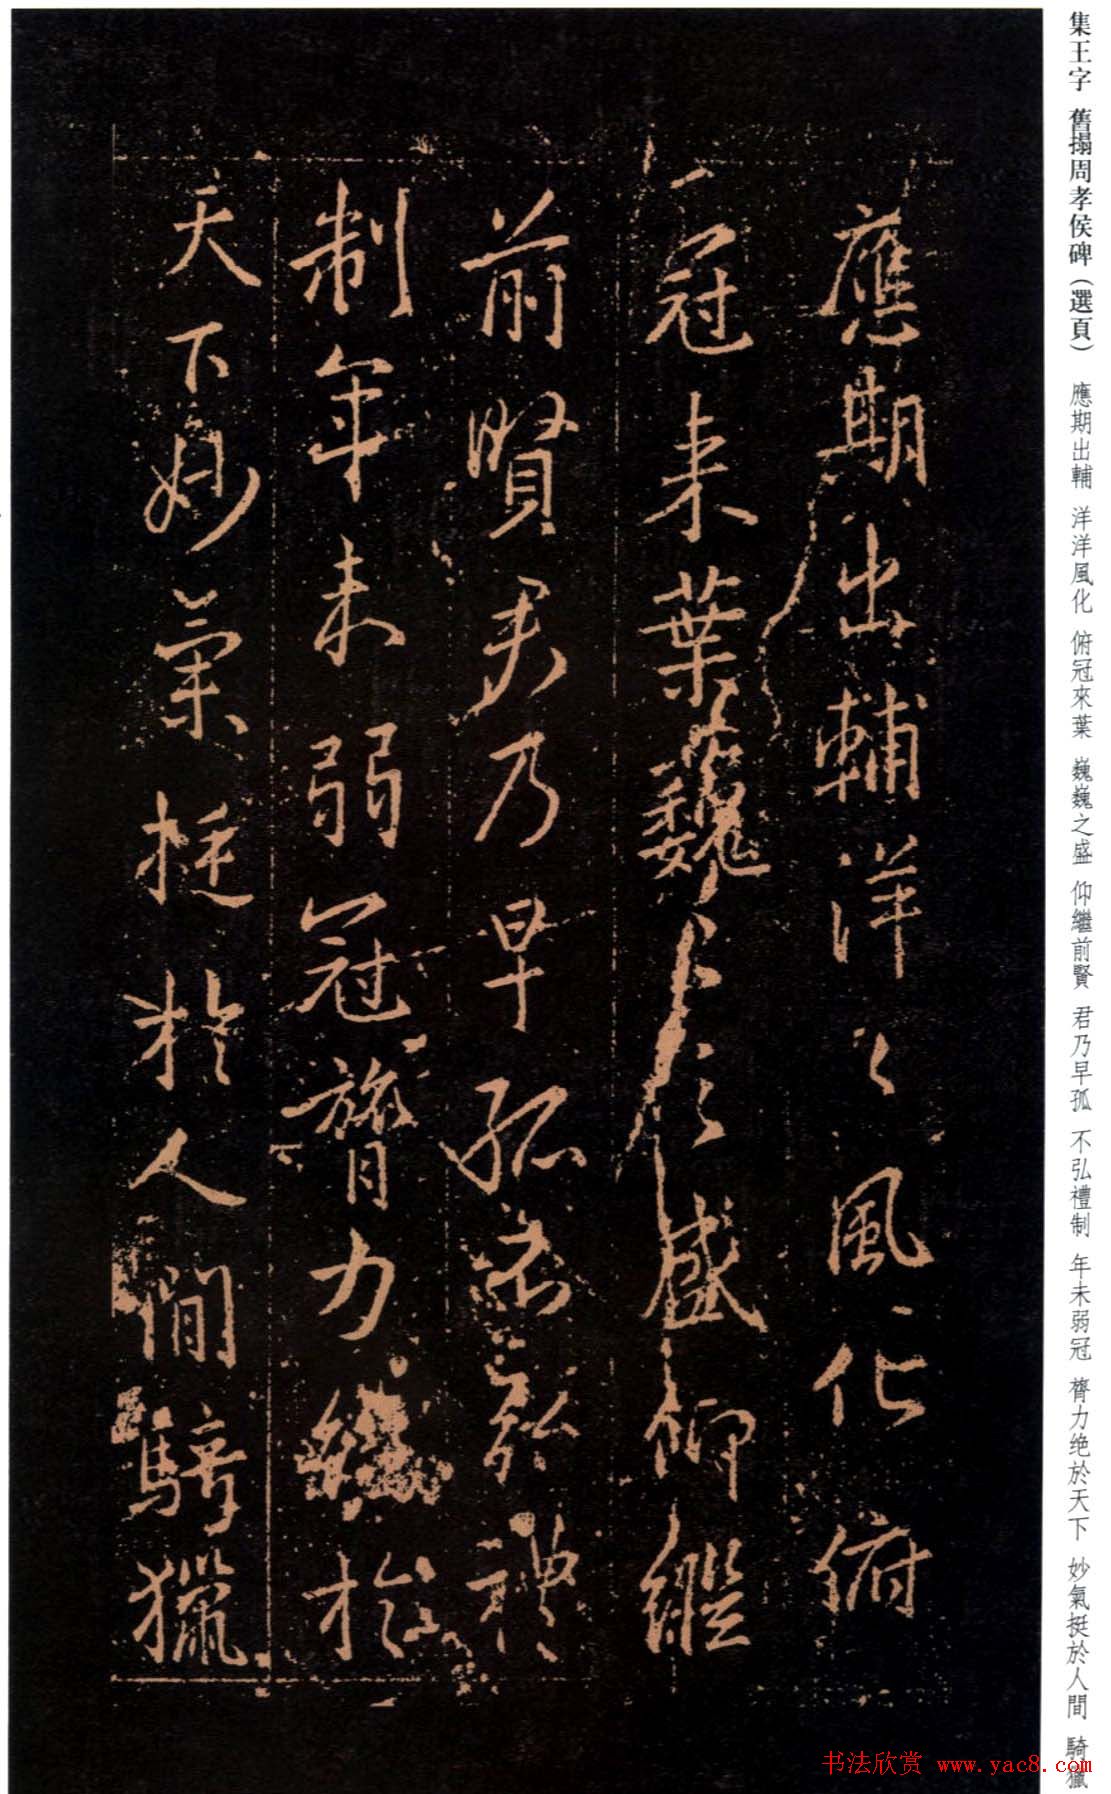 集王字 舊搨周孝侯碑（選頁） 應期出輔 洋洋風化 俯冠來葉 巍巍之盛 仰繼前賢 君乃早孤 不弘禮制 年未弱冠 膂力绝於天下 妙氣挺於人間 騎獵
應期出輔洋〻風化俯
冠来葉巍〻之盛仰繼
前賢君乃早孤不弘禮
制年未弱冠膂力絶於
天下妙氣挺於人間騎獵
书法欣赏 www.yac8.com